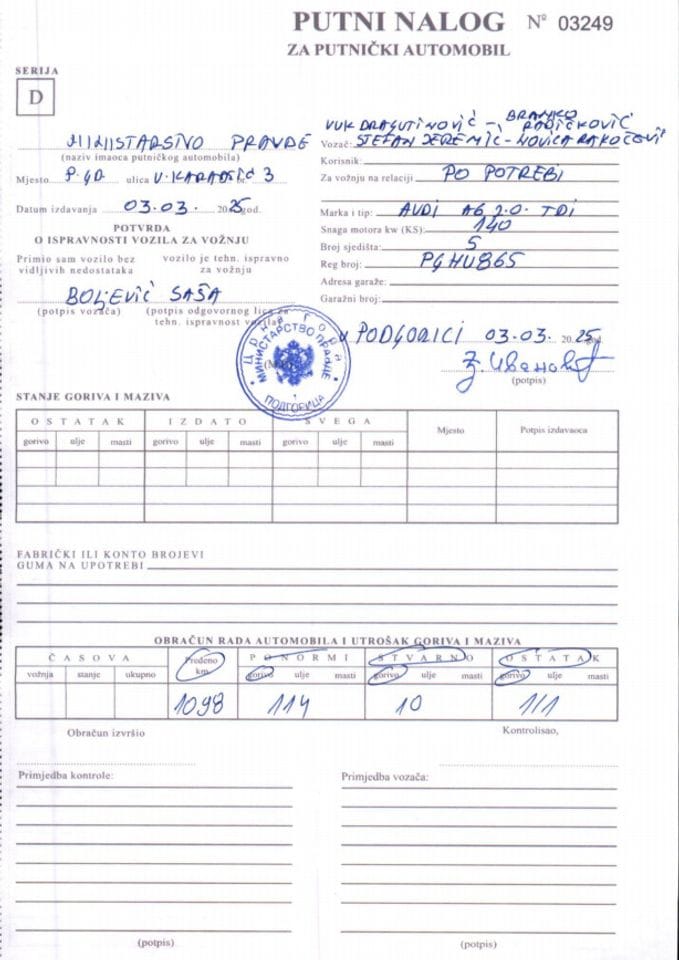 PUTNI NALOG Nº 03249
ZA PUTNIČKI AUTOMOBIL
SERIJA
D
MINISTARSTVO PRAVDE
(naziv imaoca putničkog automobila)
Mjesto P.GD. ulica V. KARADŽIĆ 3
Datum izdavanja 03.03. 2025 god.
POTVRDA
O ISPRAVNOSTI VOZILA ZA VOŽNJU
Primio sam vozilo bez vidljivih nedostataka
vozilo je tehn. ispravno za vožnju
BOLJEVIĆ SAŠA
(potpis vozača) (potpis odgovornog lica za tehn. ispravnost vozila)
VUK DRAGUTINOVIĆ - BRANKO RADIČKOVIĆ
Vozač: STEFAN JEREMIĆ - NOVICA RAKOČEVIĆ
Korisnik:
Za vožnju na relaciji PO POTREBI
Marka i tip: AUDI A6 2.0. TDI
Snaga motora kw (KS): 140
Broj sjedišta: 5
Reg broj: PGHU865
Adresa garaže:
Garažni broj:
U PODGORICI 03.03. 2025 god.
(potpis)
Црна Гора
МИНИСТАРСТВО ПРАВДЕ
ПОДГОРИЦА
STANJE GORIVA I MAZIVA
OSTATAK IZDATO SVEGA Mjesto Potpis izdavaoca
gorivo ulje masti gorivo ulje masti gorivo ulje masti
FABRIČKI ILI KONTO BROJEVI
GUMA NA UPOTREBI
OBRAČUN RADA AUTOMOBILA I UTROŠAK GORIVA I MAZIVA
ČASOVA Pređeno km. PO NORMI STVARNO OSTATAK
vožnja stanje ukupno gorivo ulje masti gorivo ulje masti gorivo ulje masti
1098 114 10 1/1
Obračun izvršio Kontrolisao,
Primjedba kontrole: Primjedba vozača:
(potpis) (potpis)